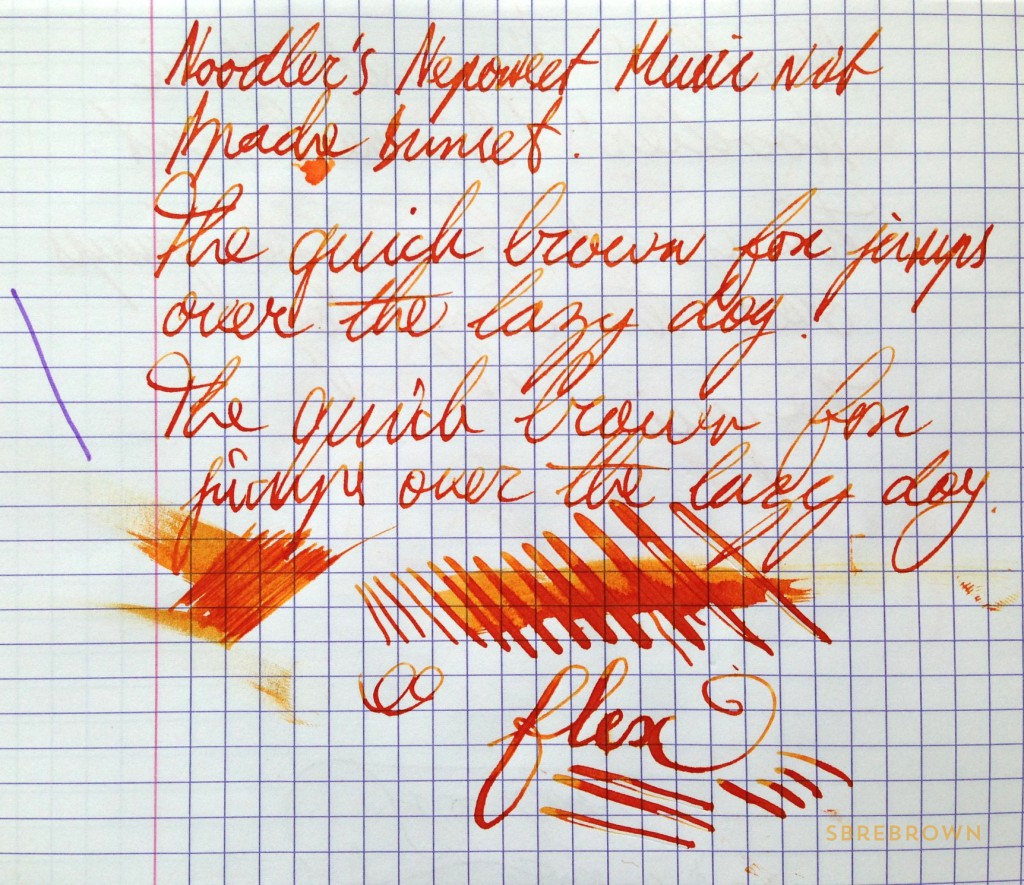 Noodler's Neponset Music Nib
Apache Sunset.
The quick brown fox jumps
over the lazy dog.
The quick brown fox
jumps over the lazy dog.
flex
SBREBROWN